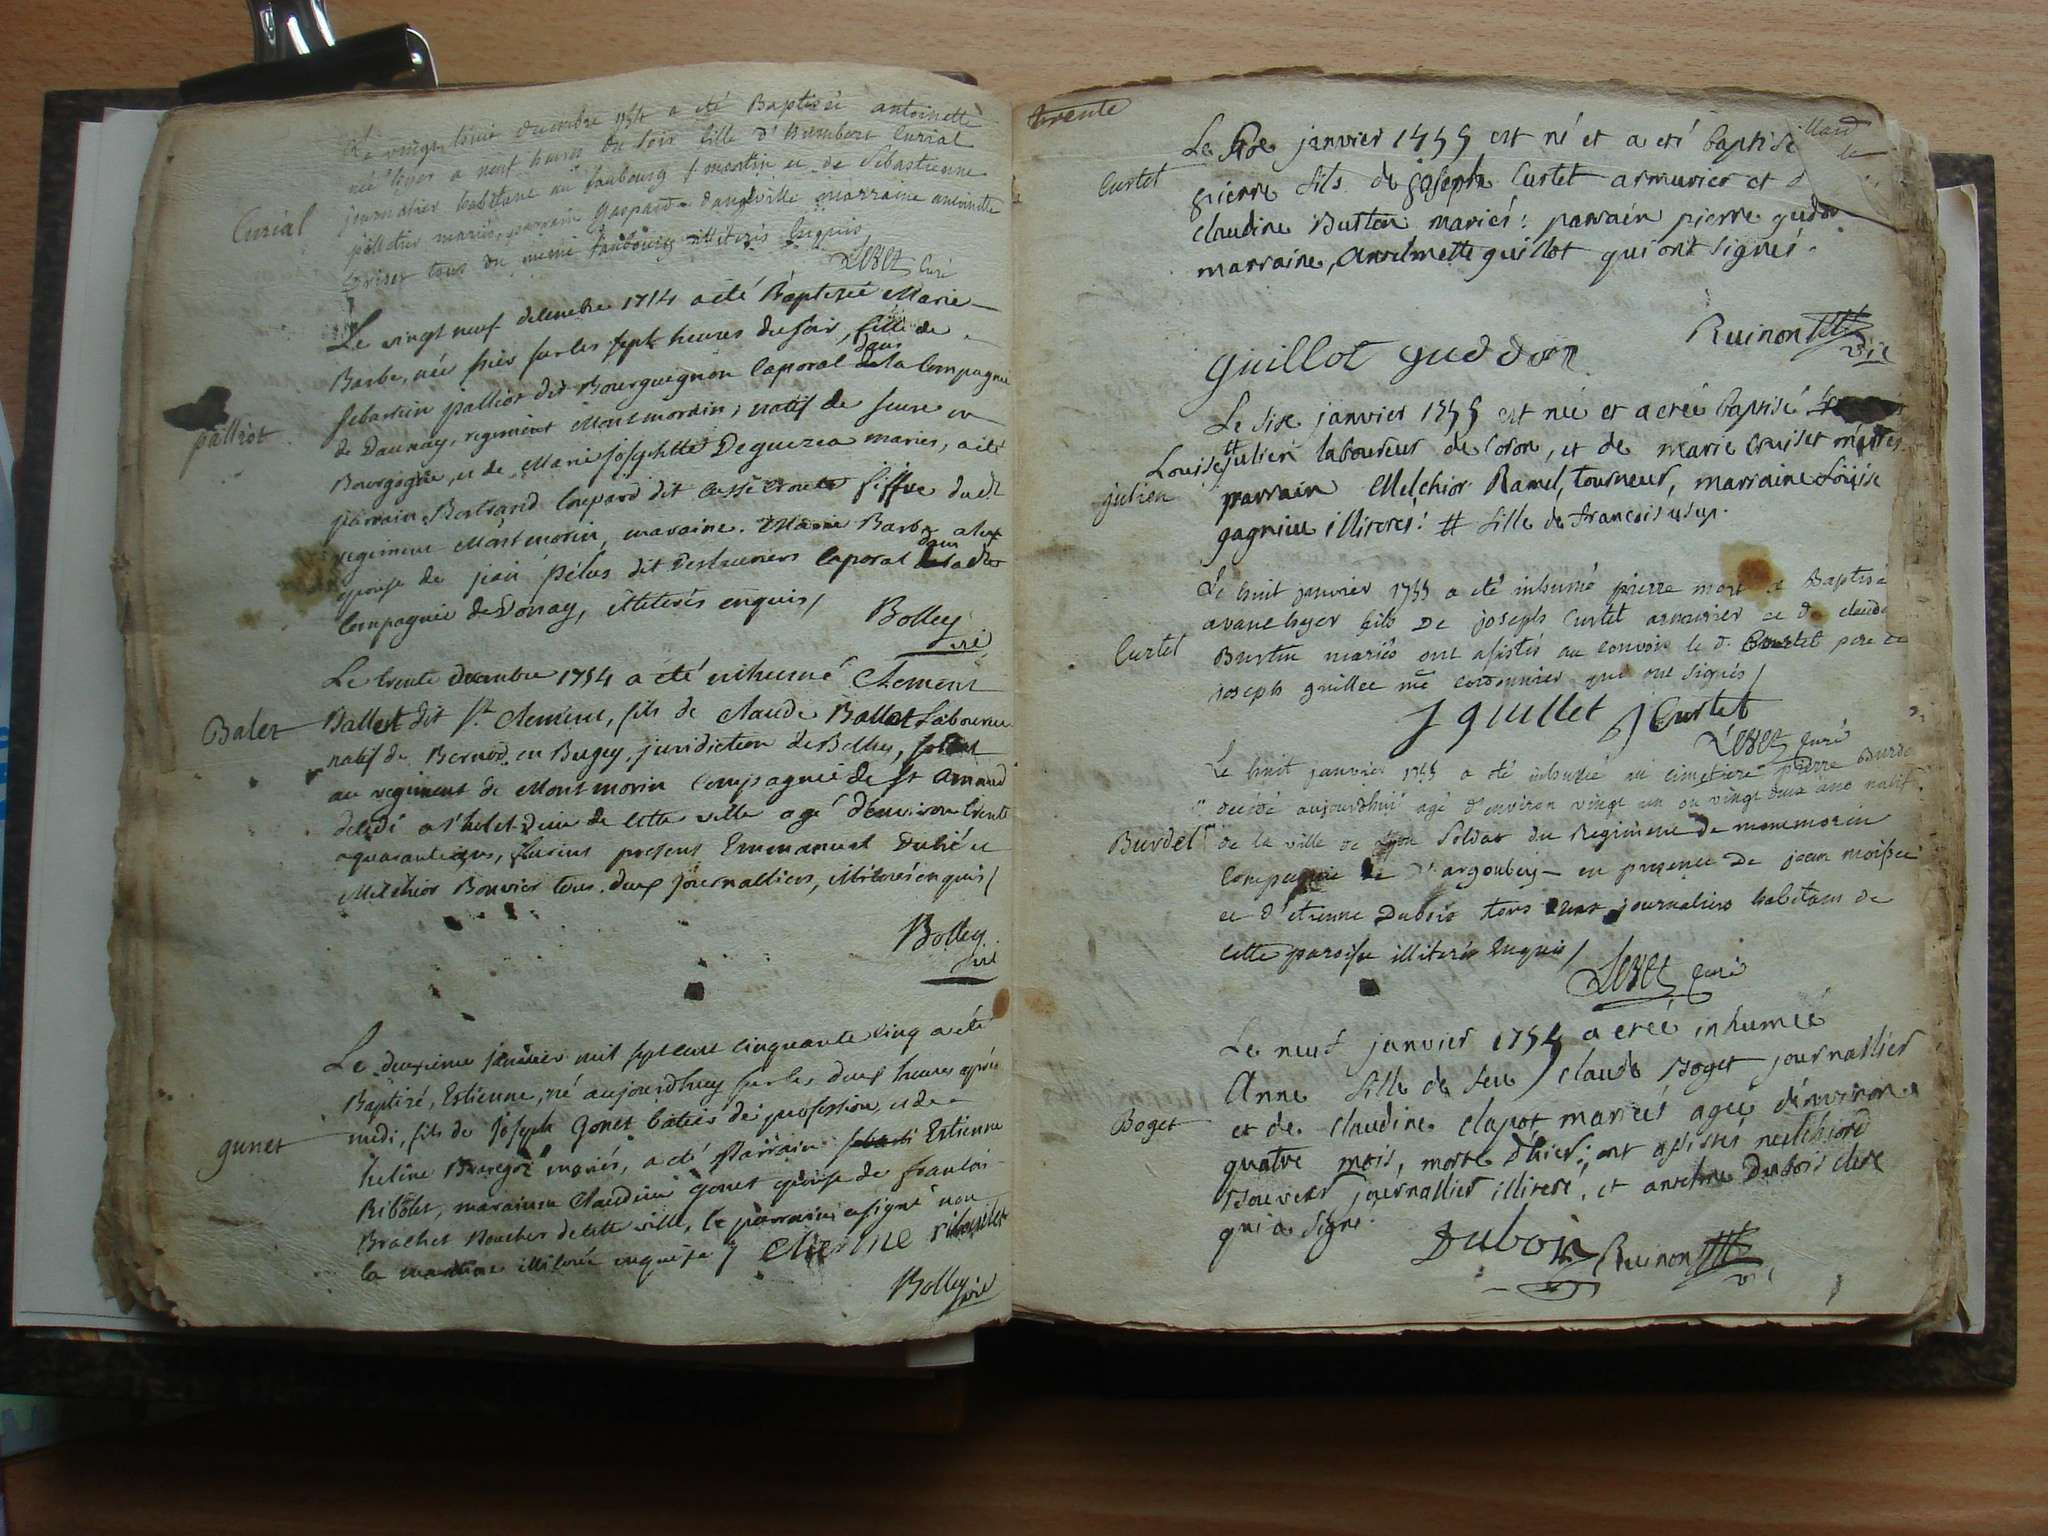 Le vingt huit decembre 1754 a été Baptisée antoinette
née hyer a neuf heures du soir fille d'humbert Curial
journalier habitant au faubourg St martin et de Sebastienne
Curial
pelletier mariés, parrain gaspard marraine antoinette
tous du meme faubourg illiterés Enquis
curé
Le vingt neuf decembre 1754 a été Baptisée Marie
Barbe, née hier sur les sept heures du soir, fille de
Sebastien palliot dit Bourguignon Caporal dans la Compagnie
palliot
de Daunay, regiment Montmorin, natif de seure en
Bourgogne, et de Marie Josephtte mariés, a été
parrain Bertrand dit Casse Croute fiffre dudt
regiment Montmorin, maraine Marie Barbe
epouse de jean pélus dit Caporal dans ladte
Compagnie de Donay, illiterés enquis /
Bolley
vic
Le trente decembre 1754 a été inhumé Clement
Balet
Ballet dit St Clement, fils de Claude Ballet Laboureur
natif de Bernod en Bugey, juridiction de Belley, soldat
au regiment de Montmorin Compagnie de St Amand
deledé a l'hotel Dieu de cette ville agé d'environ trente
a quarante ans, furent present Emmanuel Dubié et
Melchior Bouvier tous deux journalliers, illiterés enquis /
Bolley
vic
Le deuxieme janvier mil sept cent cinquante cinq a été
Baptizé, Estienne, né aujourdhuy sur les deux heures après
gunet
midi, fils de Joseph Gonet batier de profession, et de
heline mariés, a été Parrain Estienne
Ribolet, maraine Claudine Gonet epouse de francois
Brachet Boucher de cette ville, le parrain a signé non
la maraine illiterée enquise / etienne ribollet
Bolley
vic
trente
Le Six janvier 1755 est né et a eté baptisé
Curtet
pierre fils de joseph Curtet armurier et d
claudine Burtin mariés: parrain pierre gudon
marraine, Anselmette guillot qui ont signés.
Ruinon
vic
guillot guddon
Le six janvier 1755 est née et a etée baptisé
Louise julien laboureur de coron, et de marie cruiset mariés
julien
parrain Melchior Ramel, tourneur, marraine Loüise
gagnieu illiterés: # fille de francois usup.
Le huit janvier 1755 a été inhumé pierre mort et Baptisé
avant hyer fils De joseph Curtet armurier et de claude
Curtet
Burtin mariés ont asistés au convoir le d. Curtet pere et
joseph guillet me cordonnier qui ont signés /
J guillet J Curtet
curé
Le huit janvier 1755 a été inhumé au cimetiere pierre Burde
decédé aujourdhui agé d'environ vingt un ou vingt deux ans natif
Burdel
de la ville de Lyon Soldat du Regiment de montmorin
compagnie de D'argoubes en presence de jean moissie
et d'etienne Dubois tous deux journaliers habitans de
cette paroisse illiterés Enquis /
curé
Le neuf janvier 1755 a etée inhumée
Anne fille de feu claude Boget journallier
Boget
et de claudine clapot mariés agée d'environ
quatre mois, morte d'hier; ont assistés melchiord
Bouvier journallier illiteré, et antelme Dubois clerc
qui a signé.
Dubois Ruinon
vic